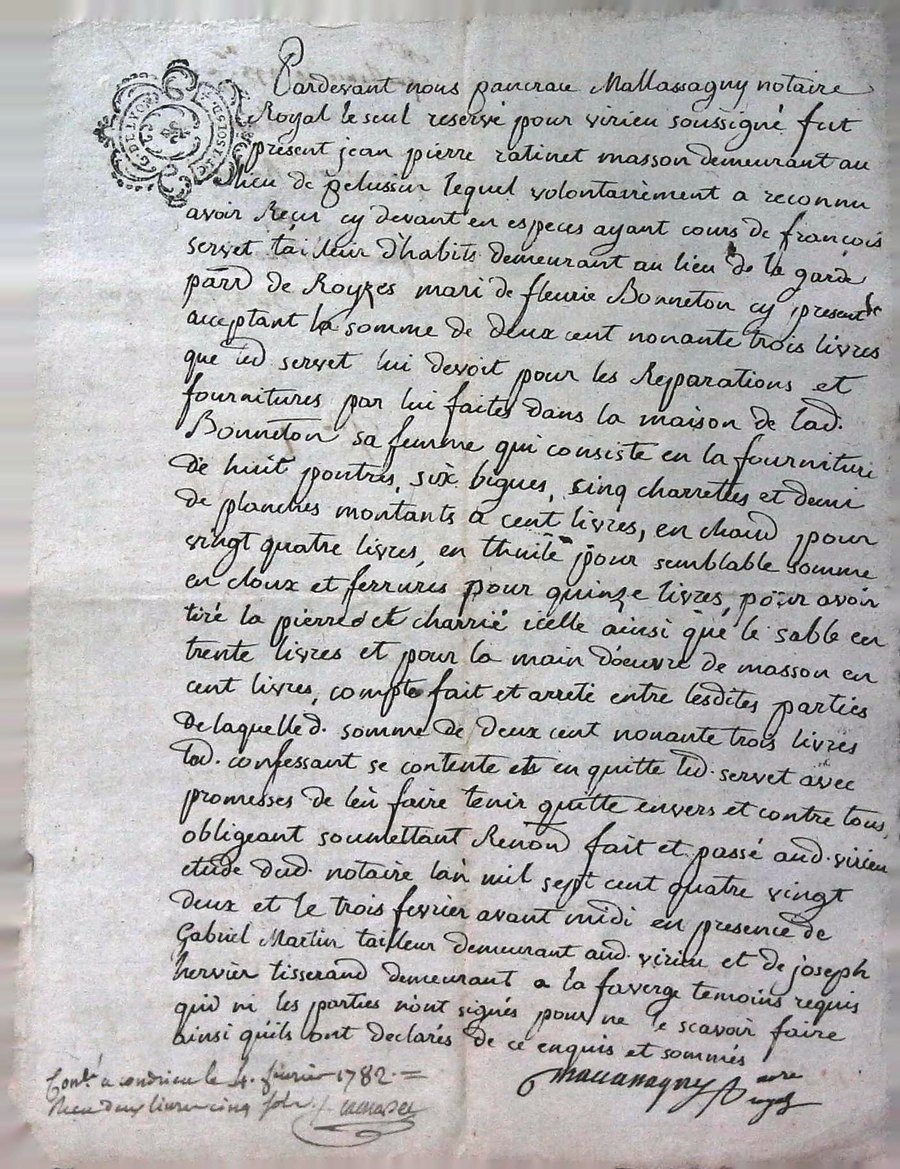 G. DE LYON
Pardevant nous pancrau Mallassagny notaire
Royal le seul reservé pour virieu soussigné fut
présent jean pierre ratinet masson demeurant au
lieu de pelussin lequel volontairement a reconnu
avoir Reçu cy devant en especes ayant cours de françois
servet tailleur d'habits demeurant au lieu de la garde
parr.d de Royzes mari de fleurie Bonneton cy present &
acceptant la somme de deux cent nonante trois livres
que led servet lui devoit pour les Reparations et
fournitures par lui faites dans la maison de lad.
Bonneton sa femme qui consiste en la fourniture
de huit poutres, six bigues, cinq charrettes et demi
de planches montants a cent livres, en chaud pour
vingt quatre livres, en thuile pour semblable somme
en cloux et ferrures pour quinze livres, pour avoir
tiré la pierre et charrié icelle ainsi que le sable en
trente livres et pour la main d'oeuvre de masson en
cent livres, compte fait et arreté entre lesdites parties
de laquelle d. somme de deux cent nonante trois livres
led. confessant se contente et en quitte led. servet avec
promesses de l'en faire tenir quitte envers et contre tous,
obligeant soumettant Renond fait et passé aud. virieu
etude dud. notaire l'an mil sept cent quatre vingt
deux et le trois fevrier avant midi en presence de
Gabriel Martin tailleur demeurant aud. virieu et de joseph
hervier tisserand demeurant a la faverge temoins requis
qui ni les parties n'ont signés pour ne le scavoir faire
ainsi qu'ils ont declarés de ce enquis et sommés
Mallassagny
Cont.é a condrieu le 4. fevrier 1782. =
Recu deux livres cinq sols